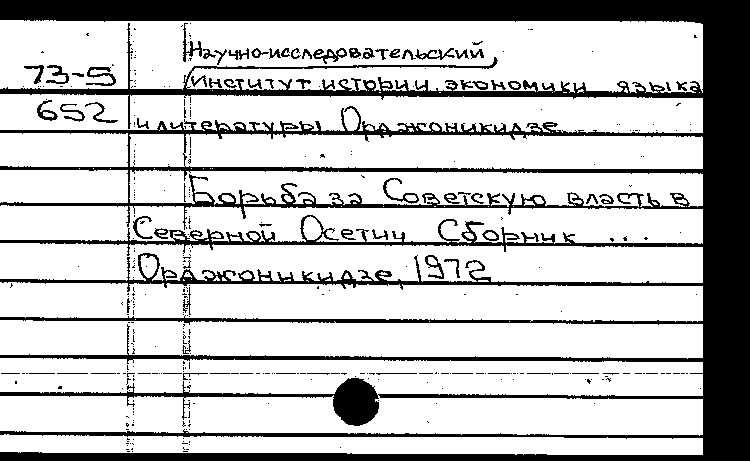 Научно-исследовательский
73-5 институт истории, экономики языка
652 и литературы Орджоникидзе
Борьба за Советскую власть в
Северной Осетии Сборник ...
Орджоникидзе, 1972